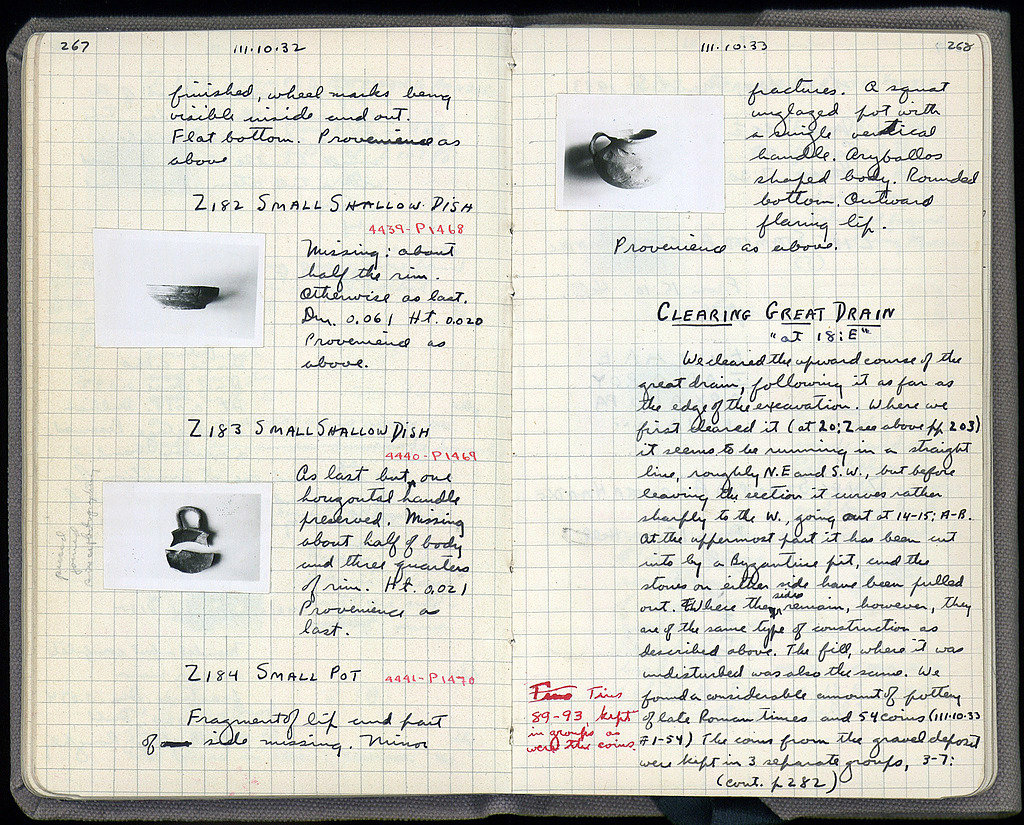 267
111.10.32
finished, wheel marks being
visible inside and out.
Flat bottom. Provenience as
above
Z182 SMALL SHALLOW DISH
4439-P1468
Missing: about
half the rim.
Otherwise as last.
Dm. 0.061 Ht. 0.020
Provenience as
above.
Z183 SMALL SHALLOW DISH
4440-P1469
As last but, one
horizontal handle
preserved. Missing
about half of body
and three quarters
of rim. Ht. 0.021
Provenience as
last.
Z184 SMALL POT 4441-P1470
Fragment of lip and part
of side missing. Minor
111.10.33
268
fractures. A squat
unglazed pot with
a single vertical
handle. Aryballos
shaped body. Rounded
bottom. Outward
flaring lip.
Provenience as above.
CLEARING GREAT DRAIN
"at 18:E"
We cleared the upward course of the
great drain, following it as far as
the edge of the excavation. Where we
first cleared it (at 20:Z see above pp. 203)
it seems to be running in a straight
line, roughly N.E and S.W., but before
leaving the section it curves rather
sharply to the W., going out at 14-15: A-B.
At the uppermost part it has been cut
into by a Byzantine pit, and the
stones on either side have been pulled
out. Where the sides remain, however, they
are of the same type of construction as
described above. The fill, where it was
undisturbed was also the same. We
found a considerable amount of pottery
of late Roman times and 54 coins (111.10.33
#1-54) The coins from the gravel deposit
were kept in 3 separate groups, 3-7:
(cont. p 282)
Tins
89-93, kept
in groups as
were the coins.